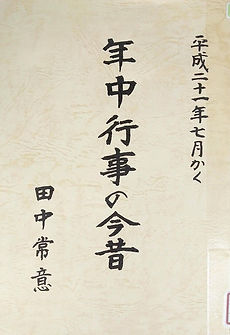 平成二十一年七月かく
年中行事の今昔
田中常意